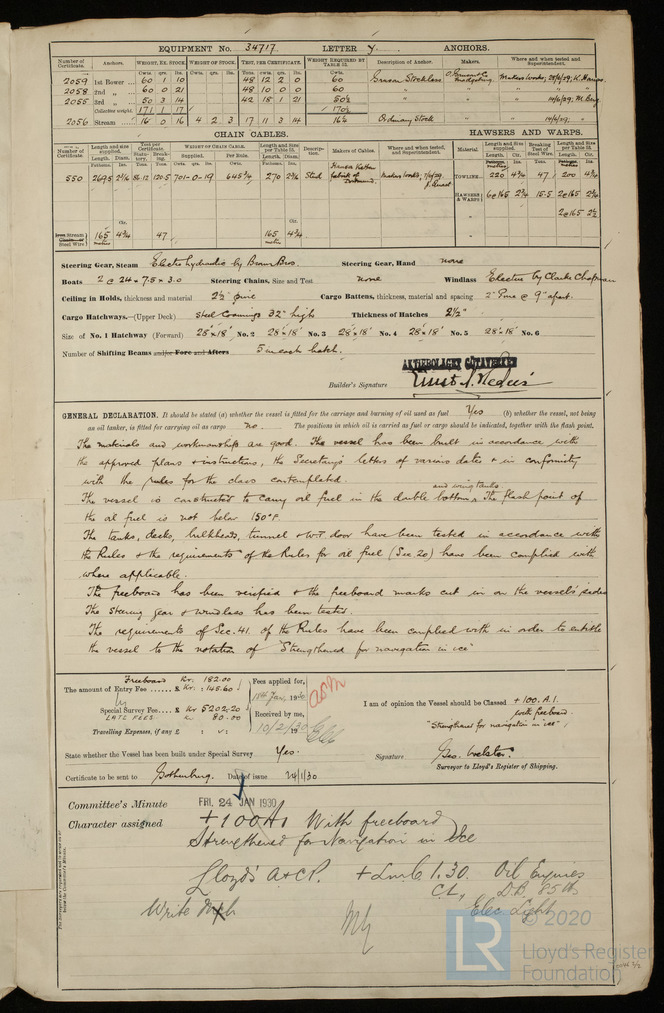 EQUIPMENT No. 34717. LETTER y. ANCHORS.
Number of Certificate. Anchors. WEIGHT, EX. STOCK. WEIGHT OF STOCK. TEST, PER CERTIFICATE. WEIGHT REQUIRED BY TABLE 22. Description of Anchor. Makers. Where and when tested and Superintendent.
Cwts. qrs. lbs. Cwts. qrs. lbs. Tons. cwts. qrs. lbs. Cwts.
2059 1st Bower 60 1 10 48 12 2 0 60 Stockless
2058 2nd „ 60 0 21 48 10 0 0 60
2055 3rd „ 50 3 14 42 18 1 21 50½
Collective weight 171 1 17 170½
2056 Stream 16 0 16 4 2 3 17 11 3 14 16½ Ordinary Stock
CHAIN CABLES. HAWSERS AND WARPS.
Number of Certificate. Length and size supplied. Test per Certificate. WEIGHT OF CHAIN CABLE. Length and size per Table 22. Description. Makers of Cables. Where and when tested, and Superintendent. Material. Length and size supplied. Breaking Test of Steel Wire. Length and size per Table 22.
550 120.5 701-0-19 645¾ 270 Stud Makers Works, TOWLINE 220 4¾ 47 200 4¾
HAWSERS & WARPS 6@165 2¾ 15.5 2@165 2¾
2@165 2½
Iron Stream Chain or Steel Wire 165 4¾ 47 165 4¾
Steering Gear, Steam Electro hydraulic by Brown Bros. Steering Gear, Hand none
Boats 2 @ 24 × 7.5 × 3.0 Steering Chains, Size and Test none Windlass Electric by Clarke Chapman
Ceiling in Holds, thickness and material 2½" pine Cargo Battens, thickness, material and spacing 2" Pine @ 9" apart.
Cargo Hatchways.—(Upper Deck) Steel Coamings 32" high Thickness of Hatches 2½"
Size of No. 1 Hatchway (Forward) 28' × 18' No. 2 28' × 18' No. 3 28' × 18' No. 4 28' × 18' No. 5 28' × 18' No. 6
Number of Shifting Beams and/or Fore and Afters 5 in each hatch.
AKTIEBOLAGET GÖTAVERKEN
Builder's Signature
GENERAL DECLARATION. It should be stated (a) whether the vessel is fitted for the carriage and burning of oil used as fuel Yes (b) whether the vessel, not being
an oil tanker, is fitted for carrying oil as cargo no. The positions in which oil is carried as fuel or cargo should be indicated, together with the flash point.
The materials and workmanship are good. The vessel has been built in accordance with
the approved plans & instructions, the Secretary's letters of various dates & in conformity
with the rules for the class contemplated.
and wing tanks.
The vessel is constructed to carry oil fuel in the double bottom & The flash point of
the oil fuel is not below 150°F.
The tanks, decks, bulkheads, tunnel & W.T. door have been tested in accordance with
the Rules & the requirements of the Rules for oil fuel (Sec. 20) have been complied with
where applicable.
The freeboard has been verified & the freeboard marks cut in on the vessel's sides
The steering gear & windlass has been tested.
The requirements of Sec. 41. of the Rules have been complied with in order to entitle
the vessel to the notation of "Strengthened for navigation in ice"
Freeboard Kr: 182.00
The amount of Entry Fee £ Kr: 145.60
Special Survey Fee £ Kr 5202.20
LATE FEES Kr 80.00
Travelling Expenses, if any £ : :
Fees applied for,
Received by me,
10/2/30
I am of opinion the Vessel should be Classed +100.A.1.
with freeboard.
"Strengthened for navigation in ice".
State whether the Vessel has been built under Special Survey Yes.
Signature Geo. Webster.
Surveyor to Lloyd's Register of Shipping.
Certificate to be sent to Gothenburg. Date of issue 24/1/30
Committee's Minute FRI. 24 JAN 1930
Character assigned +100A1 With freeboard
Strengthened for Navigation in Ice
Lloyd's A&CP. + LMC 1.30. Oil Engines
C.L., D.B. 85 lb
Write Elec. Light
© 2020
LR
Lloyd's Register
Foundation